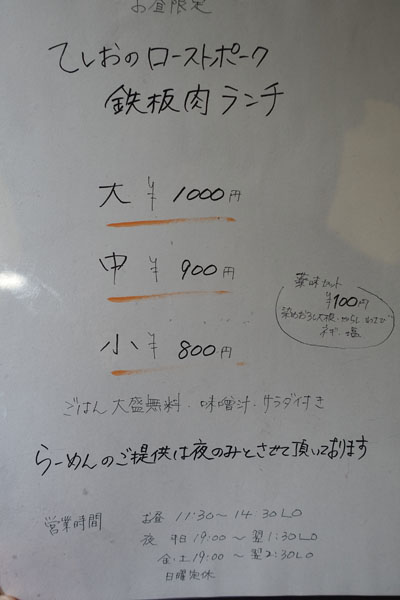 お昼限定
てしおのローストポーク
鉄板肉ランチ
大 ¥ 1000円
中 ¥ 900円
小 ¥ 800円
薬味セット
¥100円
ネギ・塩
ごはん大盛無料・味噌汁・サラダ付き
らーめんのご提供は夜のみとさせて頂いております
営業時間
お昼 11:30〜14:30LO
夜 平日19:00〜翌1:30LO
金・土19:00〜翌2:30LO
日曜定休